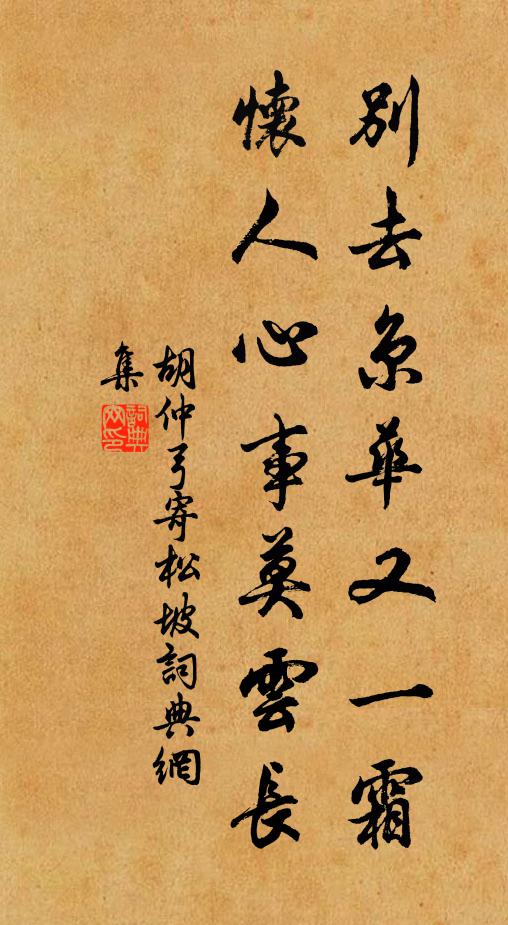 別去京華又一霜
懷人心事莫雲長
胡仲弓寄松坡詞典網
集
詞典網印